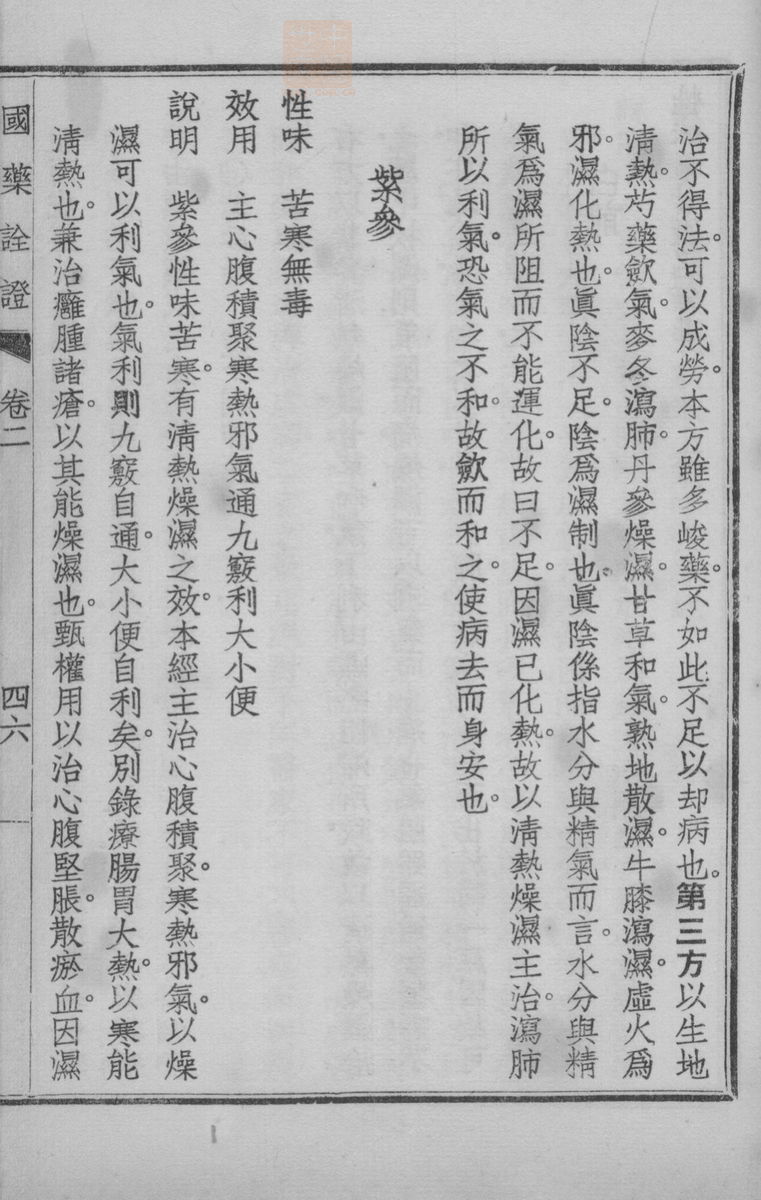 治不得法。可以成勞。本方雖多峻藥。不如此不足以却病也。第三方以生地
淸熱。芍藥歛氣。麥冬瀉肺。丹參燥濕。甘草和氣。熟地散濕。牛膝瀉濕。虛火爲
邪。濕化熱也。眞陰不足。陰爲濕制也。眞陰係指水分與精氣而言。水分與精
氣爲濕所阻而不能運化。故曰不足。因濕已化熱。故以淸熱燥濕主治。瀉肺
所以利氣。恐氣之不和。故歛而和之。使病去而身安也。
紫參
性味　苦寒無毒
效用　主心腹積聚寒熱邪氣通九竅利大小便
說明　紫參性味苦寒。有淸熱燥濕之效。本經主治心腹積聚。寒熱邪氣。以燥
濕可以利氣也。氣利則九竅自通。大小便自利矣。別錄療腸胃大熱。以寒能
淸熱也。兼治癰腫諸瘡。以其能燥濕也。甄權用以治心腹堅脹。散瘀血。因濕
國藥詮證　卷二　四六